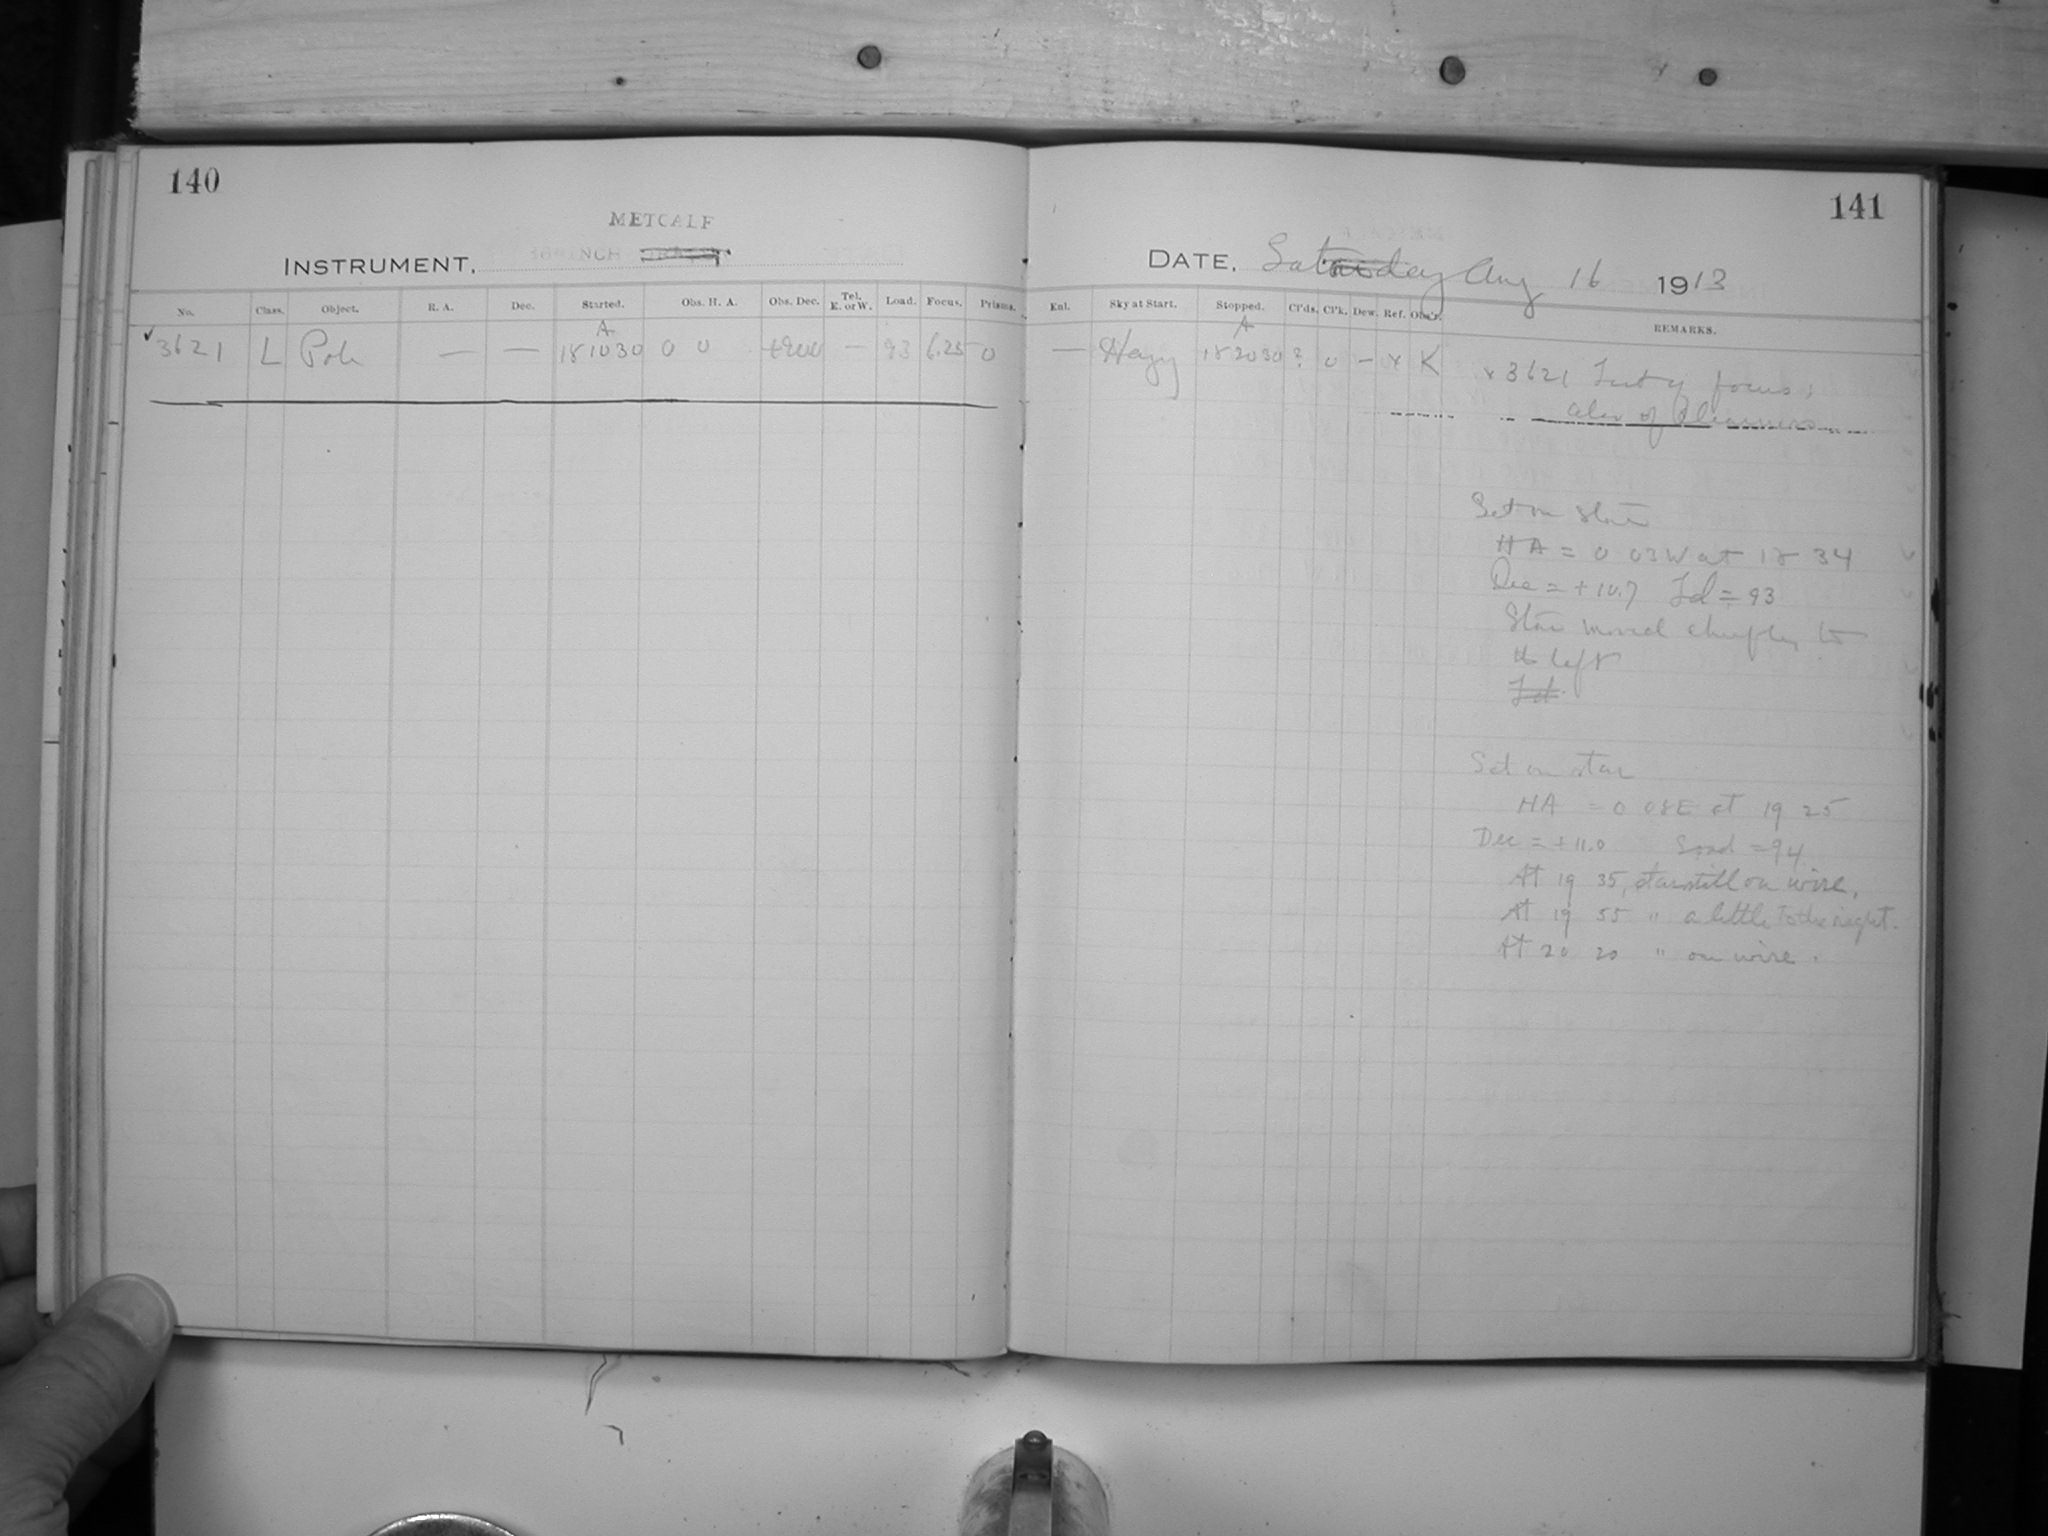 140
METCALF
INSTRUMENT, INCH
No. Class. Object. R. A. Dec. Started. Obs. H. A. Obs. Dec. Tel. E. or W. Load. Focus. Prisms.
A
3621 L Pole — — 181030 0 0 +900 — 93 6.25 0
141
DATE, Saturday Aug 16 1913
Enl. Sky at Start. Stopped. Cl'ds. Cl'k. Dew. Ref. Obs'r. REMARKS.
A
— Hazy 182030 ? 0 — x K x 3621 Test of focus;
also of
Set on star
HA = 0 03W at 18 34
Dec = +10.7 Ld = 93
Star moved chiefly to
the left
Ld.
Set on star
HA = 0 08E at 19 25
Dec = +11.0 Load = 94
At 19 35, star still on wire,
At 19 55 " a little to the right.
At 20 20 " on wire.